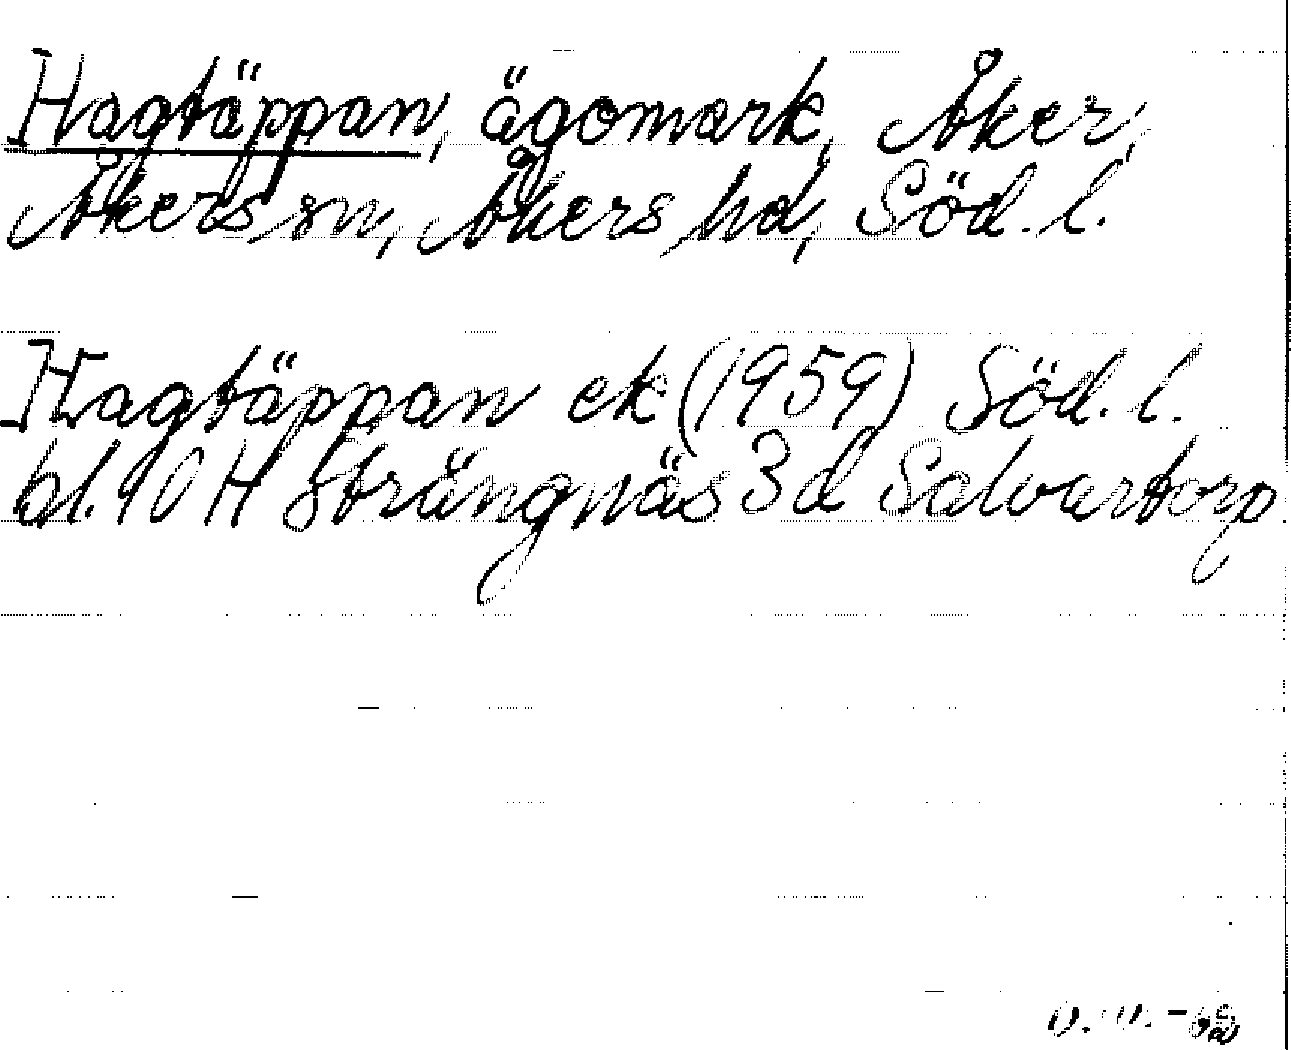 Hagtäppan, ägomark, Åker,
Åkers sn, Åkers hd, Söd. l.
Hagtäppan ek (1959) Söd. l.
bl. 10 H Strängnäs 3 d Salvartorp